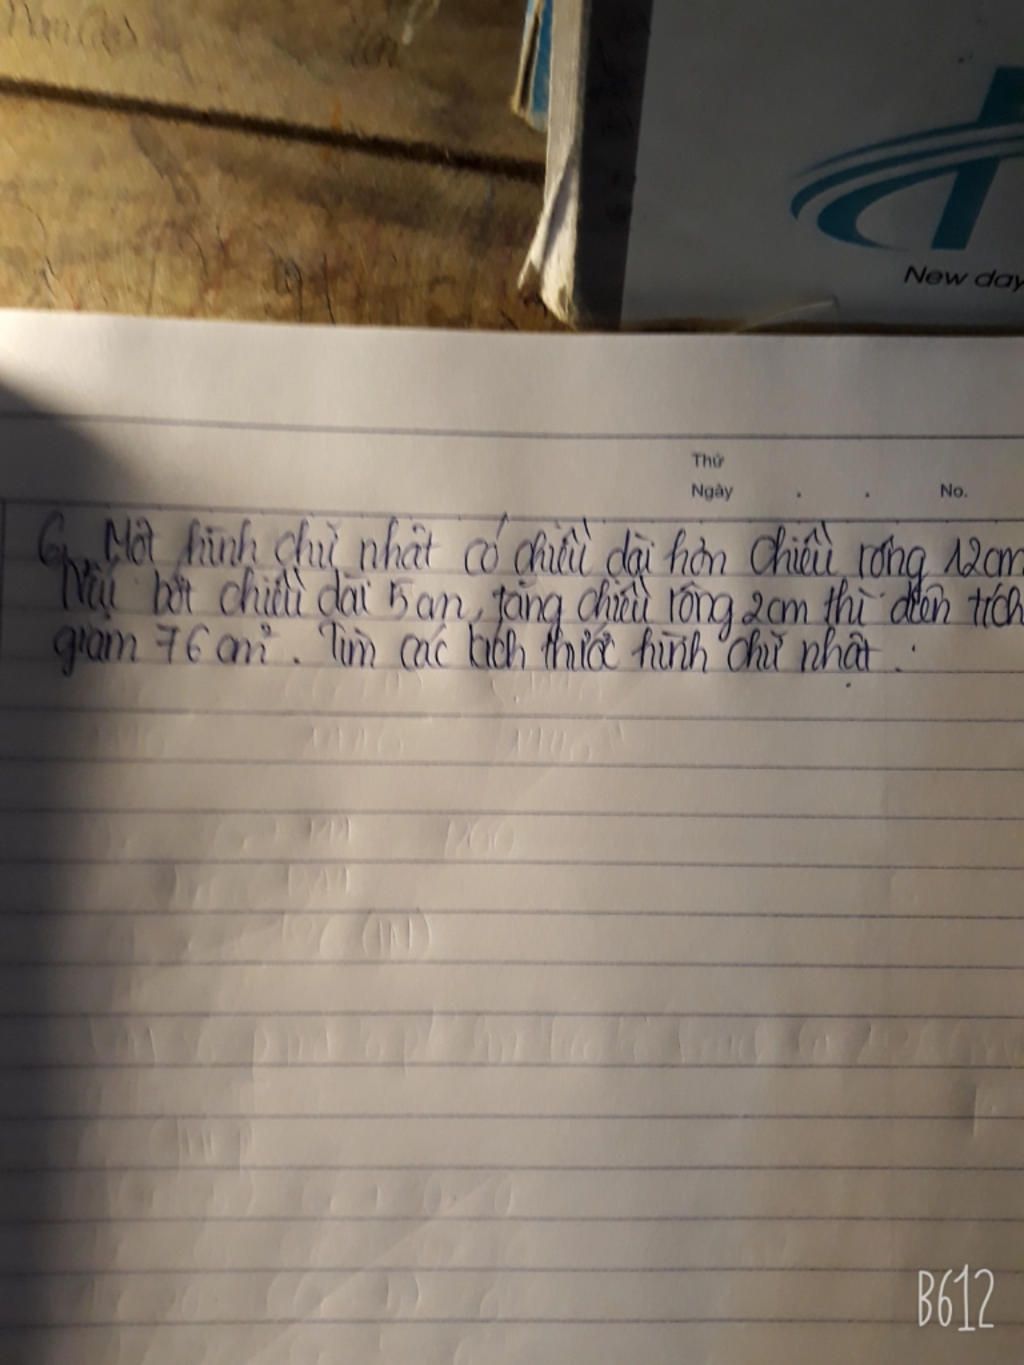 New day
Thứ
Ngày . . No.
6, Một hình chữ nhật có chiều dài hơn chiều rộng 12cm
Nếu bớt chiều dài 5cm, tăng chiều rộng 2cm thì diện tích
giảm 76cm². Tìm các kích thước hình chữ nhật.
(IN)
B612